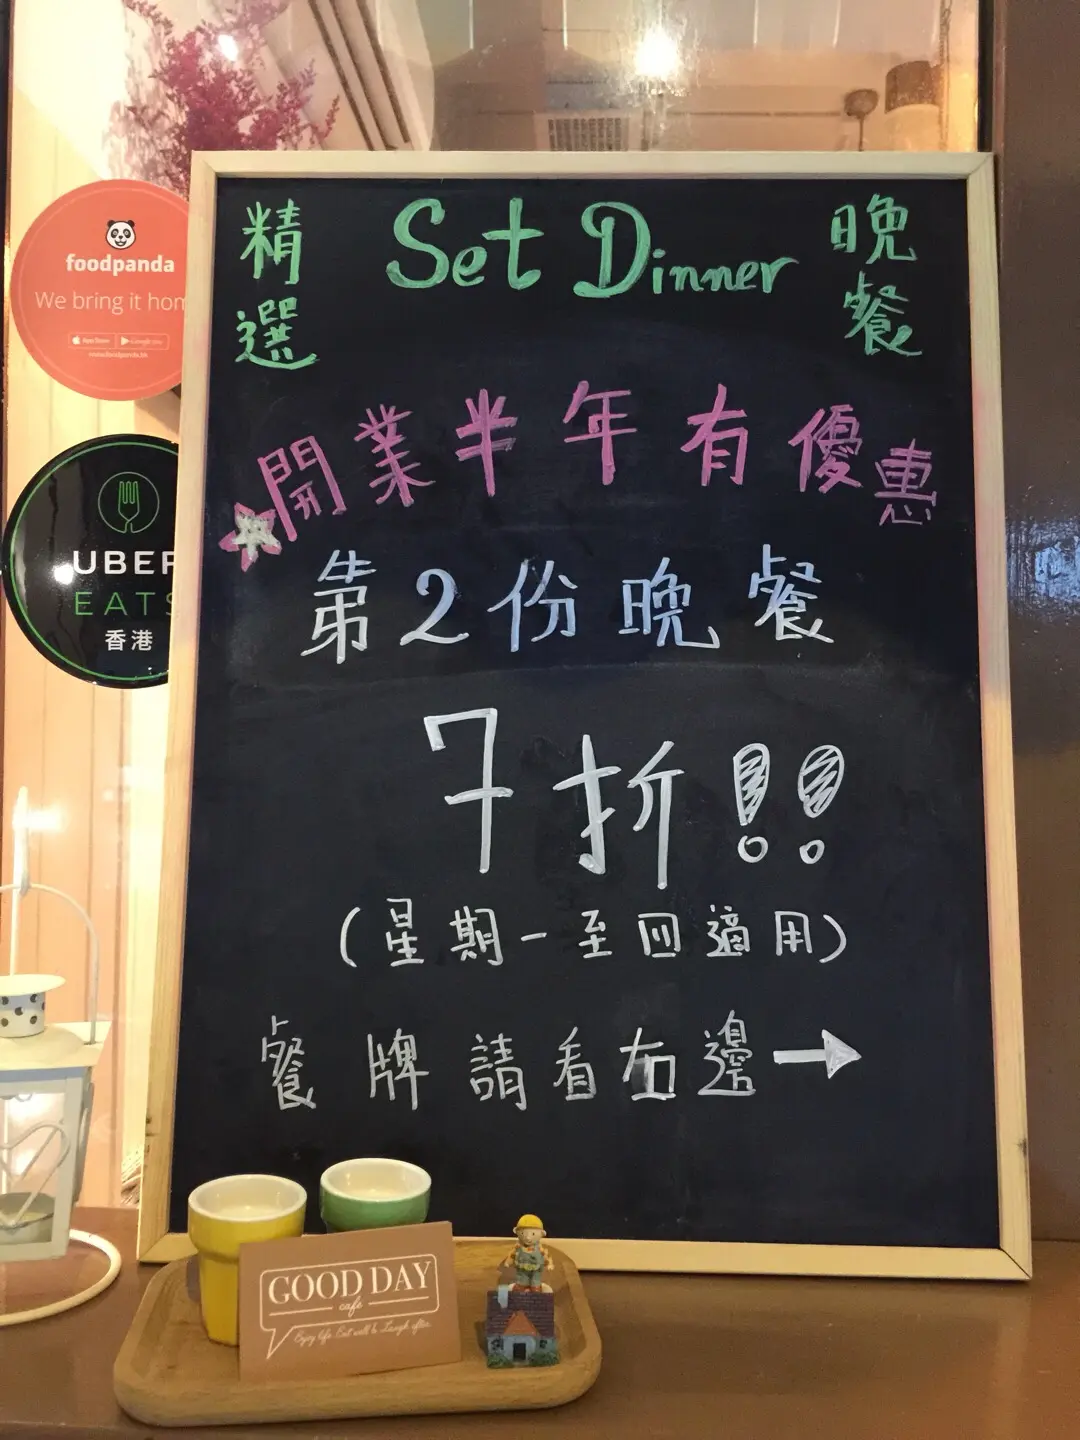 foodpanda
We bring it hom
App Store
Google play
www.foodpanda.hk
UBER
EATS
香港
精選
Set Dinner
晚餐
開業半年有優惠
第2份晚餐
7折!!
(星期一至四適用)
餐牌請看右邊→
GOOD DAY
cafe
Enjoy life. Eat well & Laugh often.